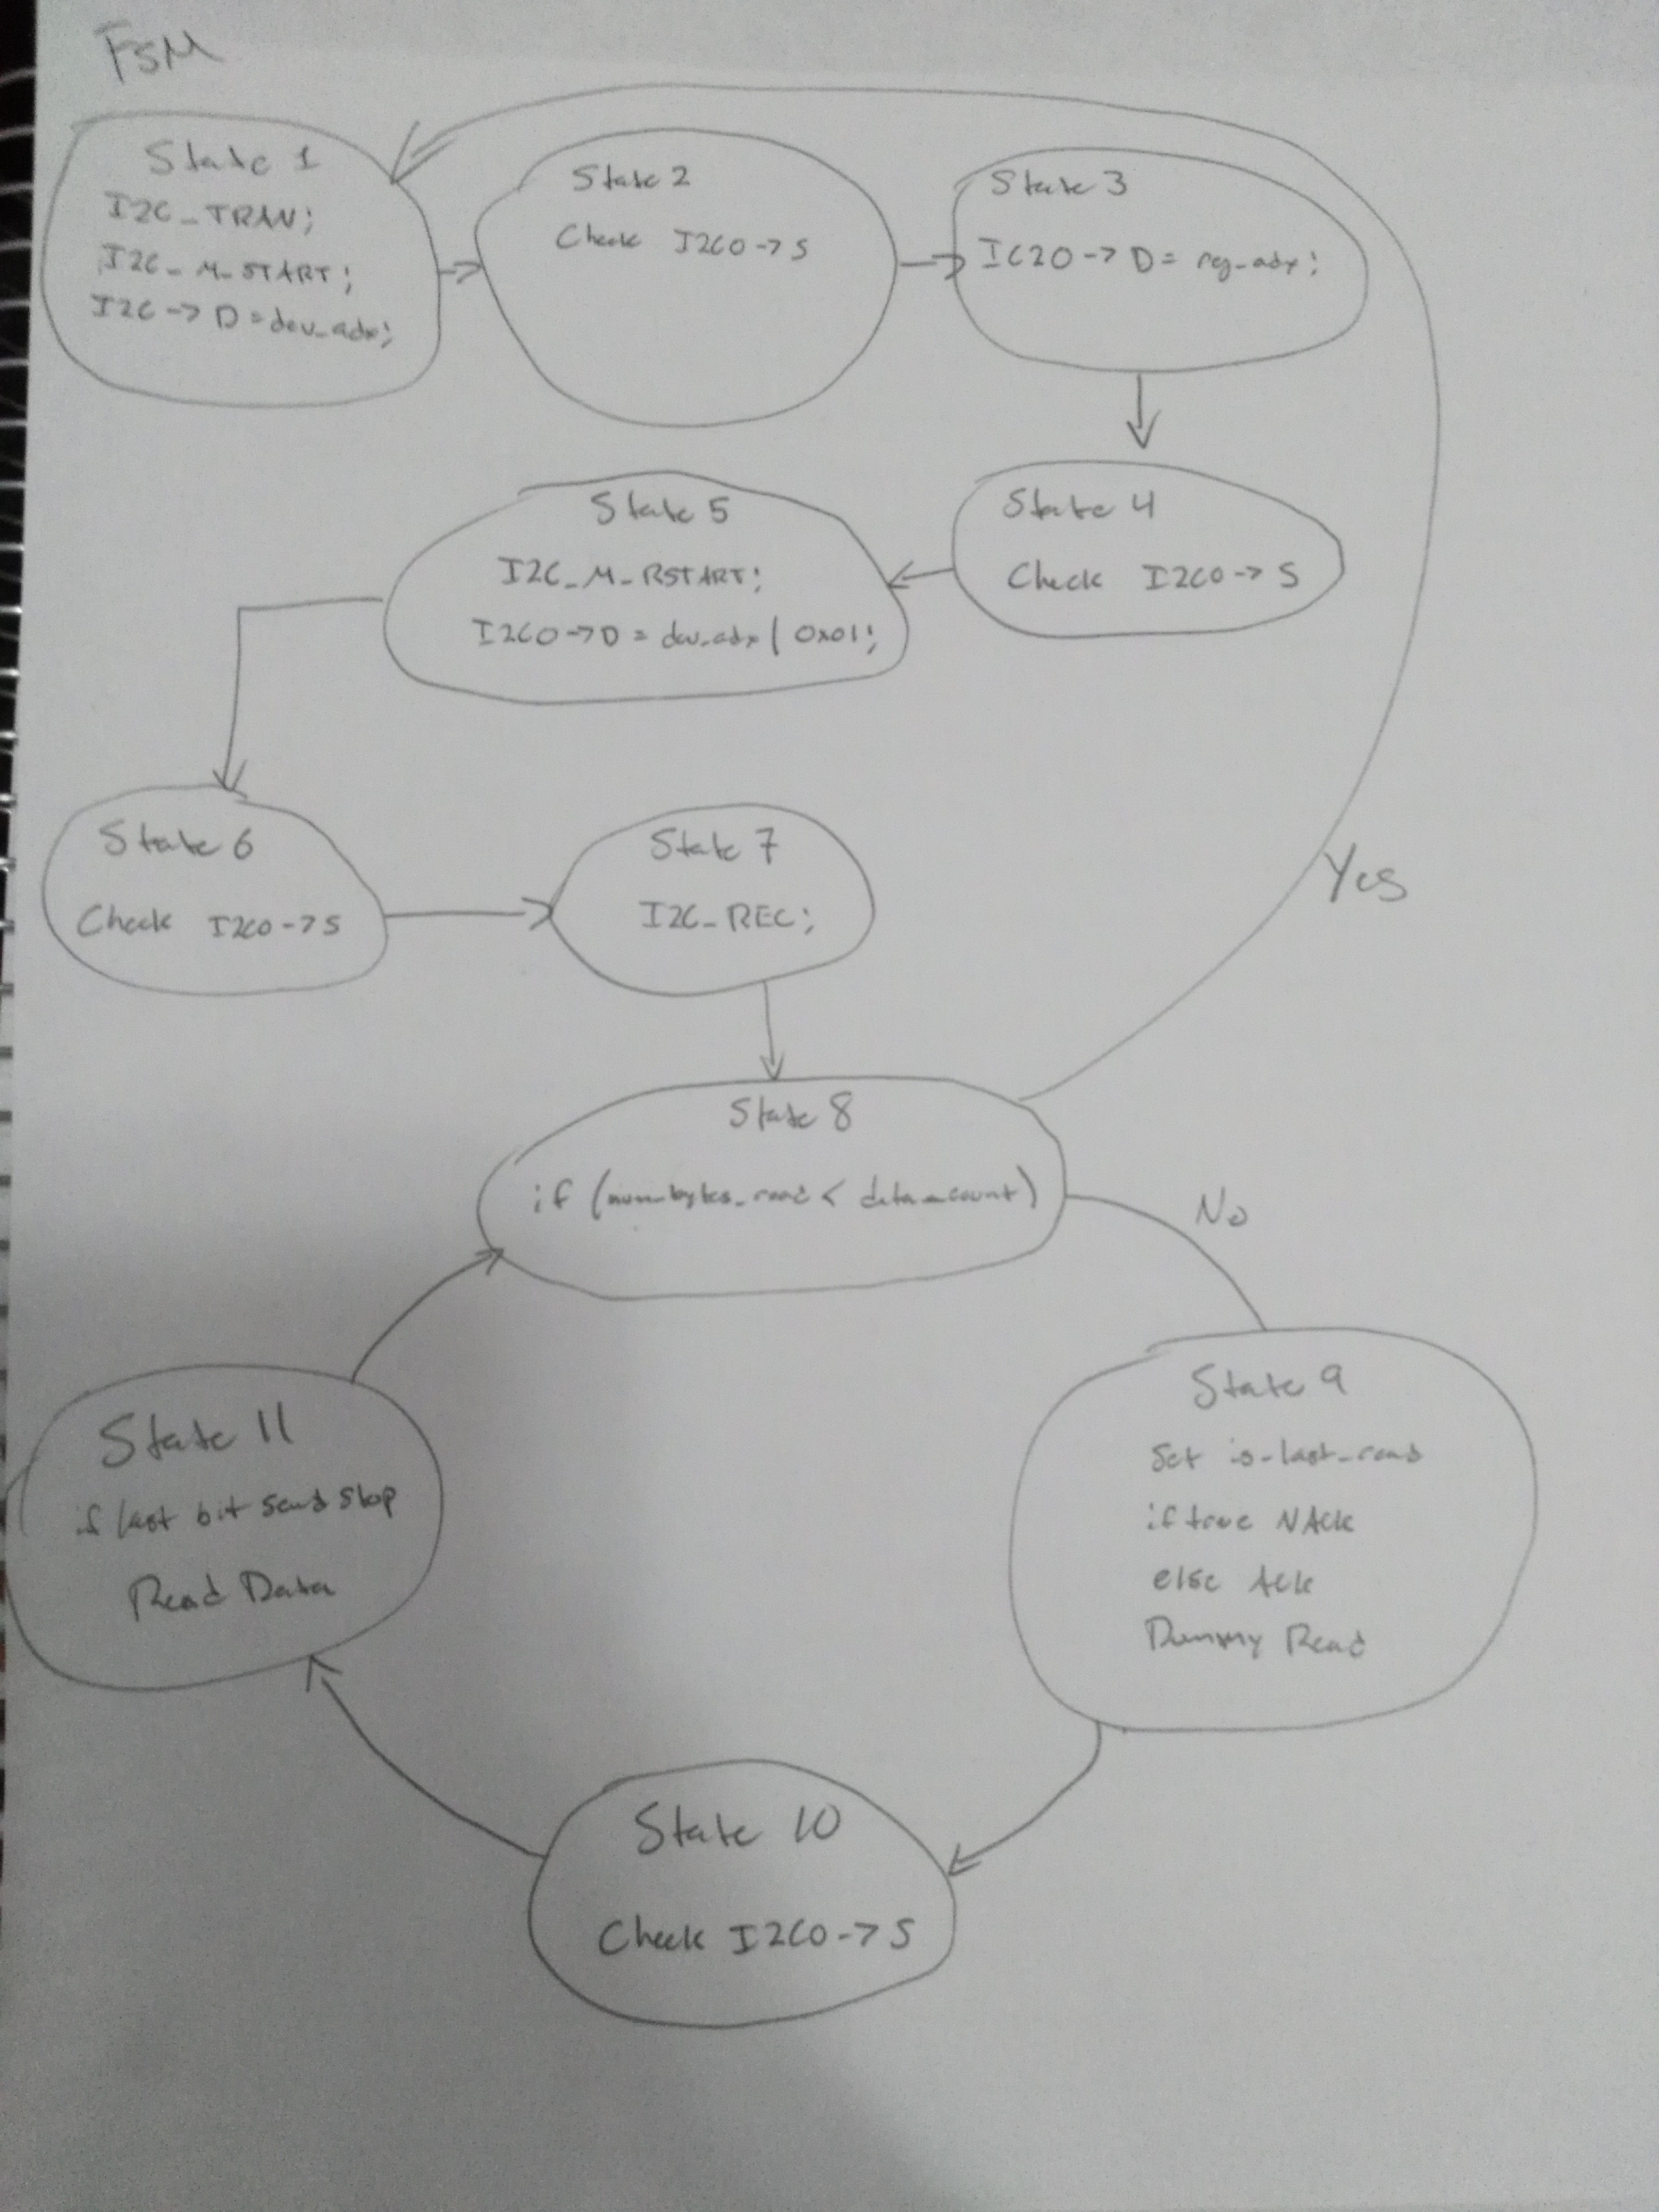 FSM
State 1
I2C_TRAN;
I2C_M_START;
I2C->D=dev_adx;
State 2
Check I2C0->S
State 3
IC20->D= reg_adx;
State 4
Check I2C0->S
State 5
I2C_M_RSTART;
I2C0->D= dev_adx | 0x01;
State 6
Check I2C0->S
State 7
I2C_REC;
Yes
State 8
if (num_bytes_read < data_count)
No
State 9
Set is_last_read
if true NACK
else ACK
Dummy Read
State 10
Check I2C0->S
State 11
if last bit send stop
Read Data